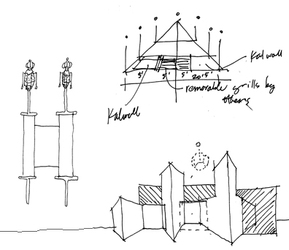 Kalwall
5' 5' 20'.5'
removable grills by
others
Kalwall